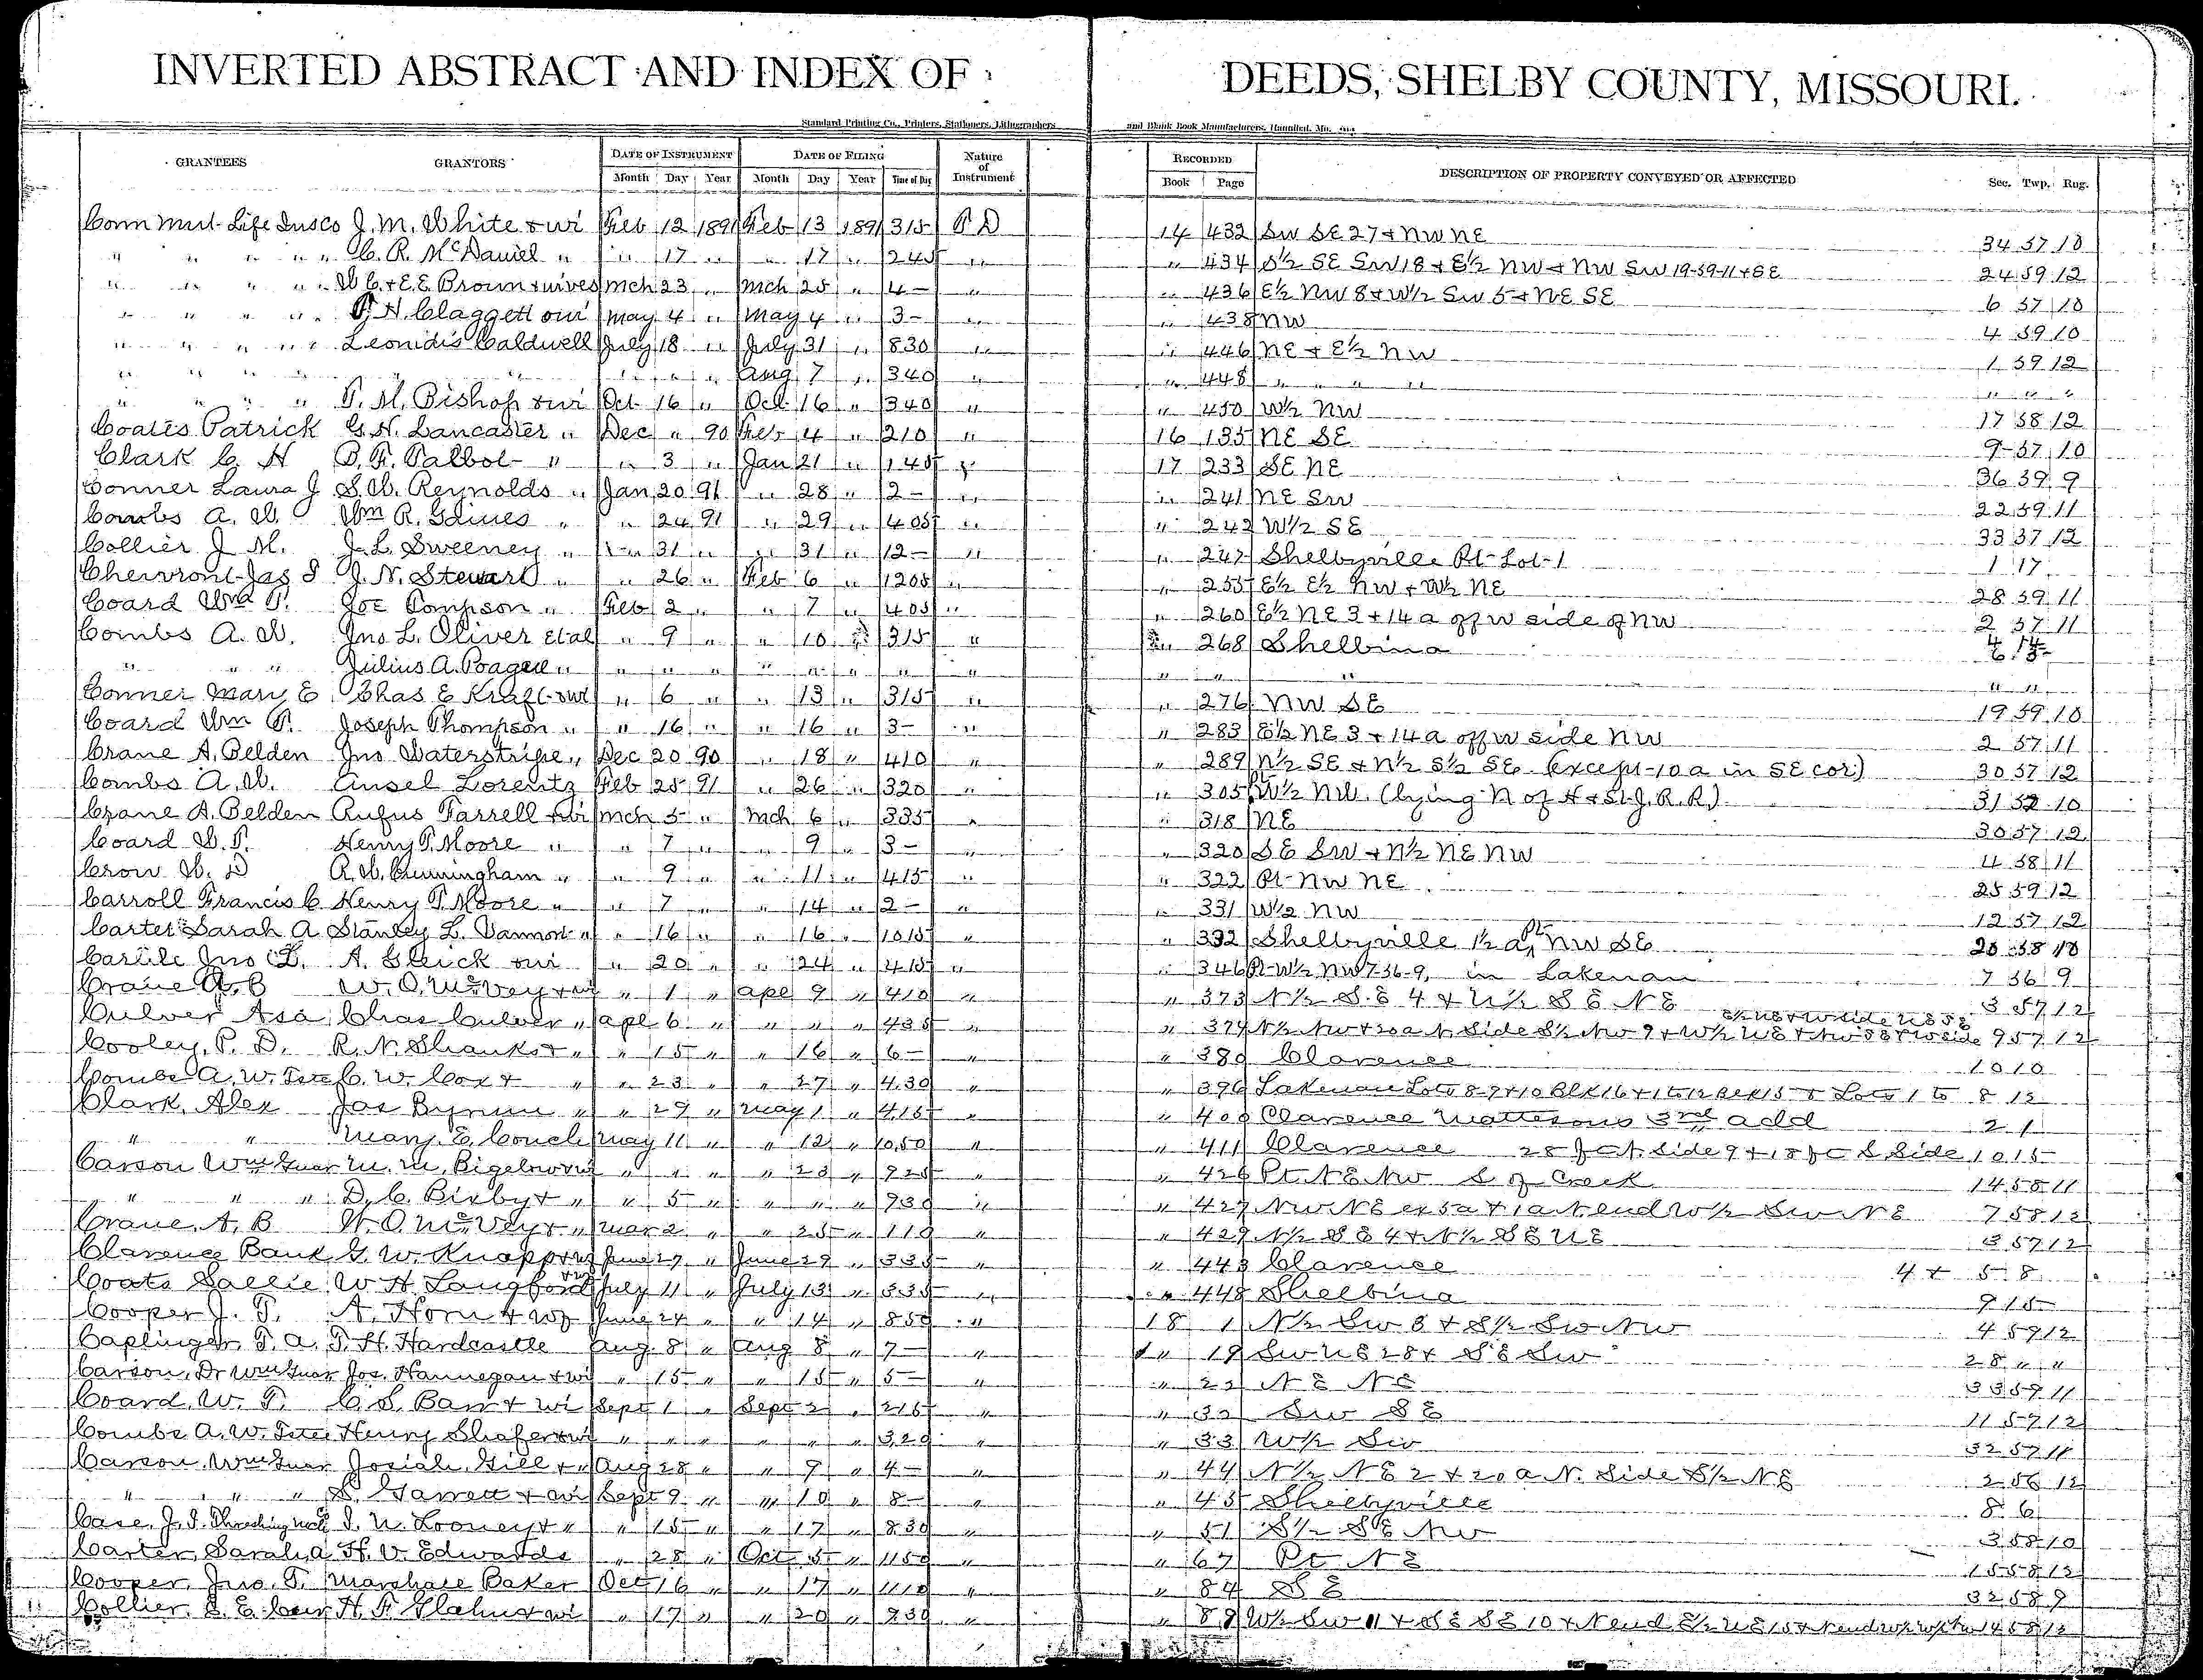 INVERTED ABSTRACT AND INDEX OF DEEDS, SHELBY COUNTY, MISSOURI.
Standard Printing Co., Printers, Stationers, Lithographers and Blank Book Manufacturers, Hannibal, Mo.
GRANTEES GRANTORS DATE OF INSTRUMENT DATE OF FILING Nature of Instrument RECORDED DESCRIPTION OF PROPERTY CONVEYED OR AFFECTED Sec. Twp. Rng.
Month Day Year Month Day Year Time of Day Book Page
Conn Mut Life Insco J. M. White & wi Feb 12 1891 Feb 13 1891 315 P D 14 432 SW SE 27 & NW NE 34 57 10
" " " " " C. R. McDaniel " " 17 " " 17 " 245 " " 434 S½ SE SW 18 & E½ NW & NW SW 19-59-11 & SE 24 59 12
" " " " " W C. & E. E. Brown & wives Mch 23 " Mch 25 " 4- " " 436 E½ NW 8 & W½ SW 5 & NE SE 6 57 10
" " " " " Claggett & wi May 4 " May 4 " 3- " " 438 NW 4 59 10
" " " " " Leonidis Caldwell July 18 " July 31 " 830 " " 446 NE & E½ NW 1 59 12
" " " " " " " " Aug 7 " 340 " " 448 " " " " " " "
" " " " P. M. Bishop & wi Oct 16 " Oct 16 " 340 " " 450 W½ NW 17 58 12
Coates Patrick G. H. Lancaster " Dec " 90 Feb 4 " 210 " 16 135 NE SE 9-57 10
Clark C. H B. F. Talbot " " 3 " Jan 21 " 145 " 17 233 SE NE 36 59 9
Conner Laura J S. W. Reynolds " Jan 20 91 " 28 " 2- " " 241 NE SW 22 59 11
Combs A. W. Wm R. Gaines " " 24 91 " 29 " 405 " " 242 W½ SE 33 57 12
Collier J M. J. L. Sweeney " " 31 " " 31 " 12- " " 247 Shelbyville Pt Lot-1 1 17
Chevront Jas S J. N. Stewart " " 26 " Feb 6 " 1205 " " 255 E½ E½ NW & W½ NE 28 59 11
Coard Wm P. Joe Tompson " Feb 2 " " 7 " 405 " " 260 E½ NE 3 & 14 a off w side of NW 2 57 11
Combs A. W. Jno L. Oliver et al " 9 " " 10 " 315 " " 268 Shelbina
" " " Julius A. " " " " " " " " " " " " " "
Conner Mary E Chas E Kraft & wi " 6 " " 13 " 315 " " 276 NW SE 19 59 10
Coard Wm P. Joseph Thompson " " 16 " " 16 " 3- " " 283 E½ NE 3 & 14 a off w side NW 2 57 11
Crane A. Belden Jno Waterstripe " Dec 20 90 " 18 " 410 " " 289 N½ SE & N½ S½ SE (except 10 a in SE cor) 30 57 12
Combs A. W. Ansel Lorentz Feb 25 91 " 26 " 320 " " 305 W½ NW. (lying N of H & St. J. R. R.) 31 10
Crane A. Belden Rufus Farrell & wi Mch 5 " Mch 6 " 335 " " 318 NE 30 57 12
Coard W. P. Henry T. Moore " " 7 " " 9 " 3- " " 320 SE SW & N½ NE NW 4 58 11
Crow W. D R. W. Cunningham " " 9 " " 11 " 415 " " 322 Pt NW NE 25 59 12
Carroll Francis C Henry T. Moore " " 7 " " 14 " 2- " " 331 W½ NW 12 57 12
Carter Sarah A Stanley L. " 16 " " 16 " 1015 " " 332 Shelbyville ½ a Pt NW SE 20 58 10
Carlile Jno L. A. Gleick & wi " 20 " " 24 " 415 " " 346 Pt W½ NW 7-56-9, in Lakenan 7 56 9
Crane A. B W. O. McVey & wi " 1 " Apl 9 " 410 " " 373 N½ S.E 4 & N½ S E N E 3 57 12
Culver Asa Chas Culver " Apl 6 " " " " 435 " " 374 N½ NW & 20 a N. Side S½ NW 9 & W½ NE & NW SE & W side S½ NE & W side NE SE 9 57 12
Cooley, P. D. R. N. Shanks & " " 15 " " 16 " 6- " " 380 Clarence 10 10
Combs A. W. Tste C. W. Cox & " " 23 " " 27 " 430 " " 396 Lakenan Lots 8-9 & 10 Blk 16 & 1 to 12 Blk 15 & Lots 1 to 8 12
Clark, Alex Jas Bynum " " 29 " May 1 " 415 " " 400 Clarence Mattesons 3rd add 2 1
" " Mary E. Couch May 11 " " 12 " 1050 " " 411 Clarence 28 ft N. Side 9 & 18 ft S Side 10 15
Carson Wm Guar M. M. Bigelow & wi " " " " 23 " 925 " " 426 Pt. NE NW S of Creek 14 58 11
" " " D. C. Bixby & " " 5 " " " " 930 " " 427 NW NE ex 5 a & 1 a N. end W½ SW NE 7 58 12
Crane, A. B W. O. McVey & " Mar 2 " " 25 " 110 " " 429 N½ SE 4 & N½ SE NE 3 57 12
Clarence Bank G. W. Knapp & wf June 27 " June 29 " 335 " " 443 Clarence 4 & 5 8
Coats Sallie W. H. Langford & wf July 11 " July 13 " 335 " " 448 Shelbina 9 15
Cooper J. T. A. Horn & wf June 24 " " 14 " 850 " 18 1 N½ SW 3 & S½ SW NW 4 59 12
Caplinger, T. A. T. H. Hardcastle Aug 8 " Aug 8 " 7- " " 19 SW NE 28 & SE SW 28 " "
Carson, Dr Wm Guar Jos. Hannegan & wi " 15 " " 15 " 5- " " 22 NE NE 33 59 11
Coard, W. T. C. S. Barr & wi Sept 1 " Sept 2 " 215 " " 32 SW SE 11 57 12
Combs A. W. Tste Henry Shafer & wi " " " " " " 320 " " 33 W½ SW 32 57 11
Carson, Wm Guar Josiah Gill & " Aug 28 " " 9 " 4- " " 44 N½ NE 2 & 20 a N. Side S½ NE 2 56 12
" " " S. Garrett & wi Sept 9 " " 10 " 8- " " 45 Shelbyville 8 6
Case, J. I. Threshing Mch I. N. Looney & " " 15 " " 17 " 830 " " 51 S½ SE NW 3 58 10
Carter, Sarah, a H. V. Edwards " 28 " Oct 5 " 1150 " " 67 Pt. NE 15 58 12
Cooper, Jno. T. Marshall Baker Oct 16 " " 17 " 1110 " " 84 SE 32 58 9
Collier, S. E. H. F. Glahn & wi " 17 " " 20 " 930 " " 89 W½ SW 11 & SE SE 10 & N end E½ NE 15 & N end W½ W½ NW 14 58 12